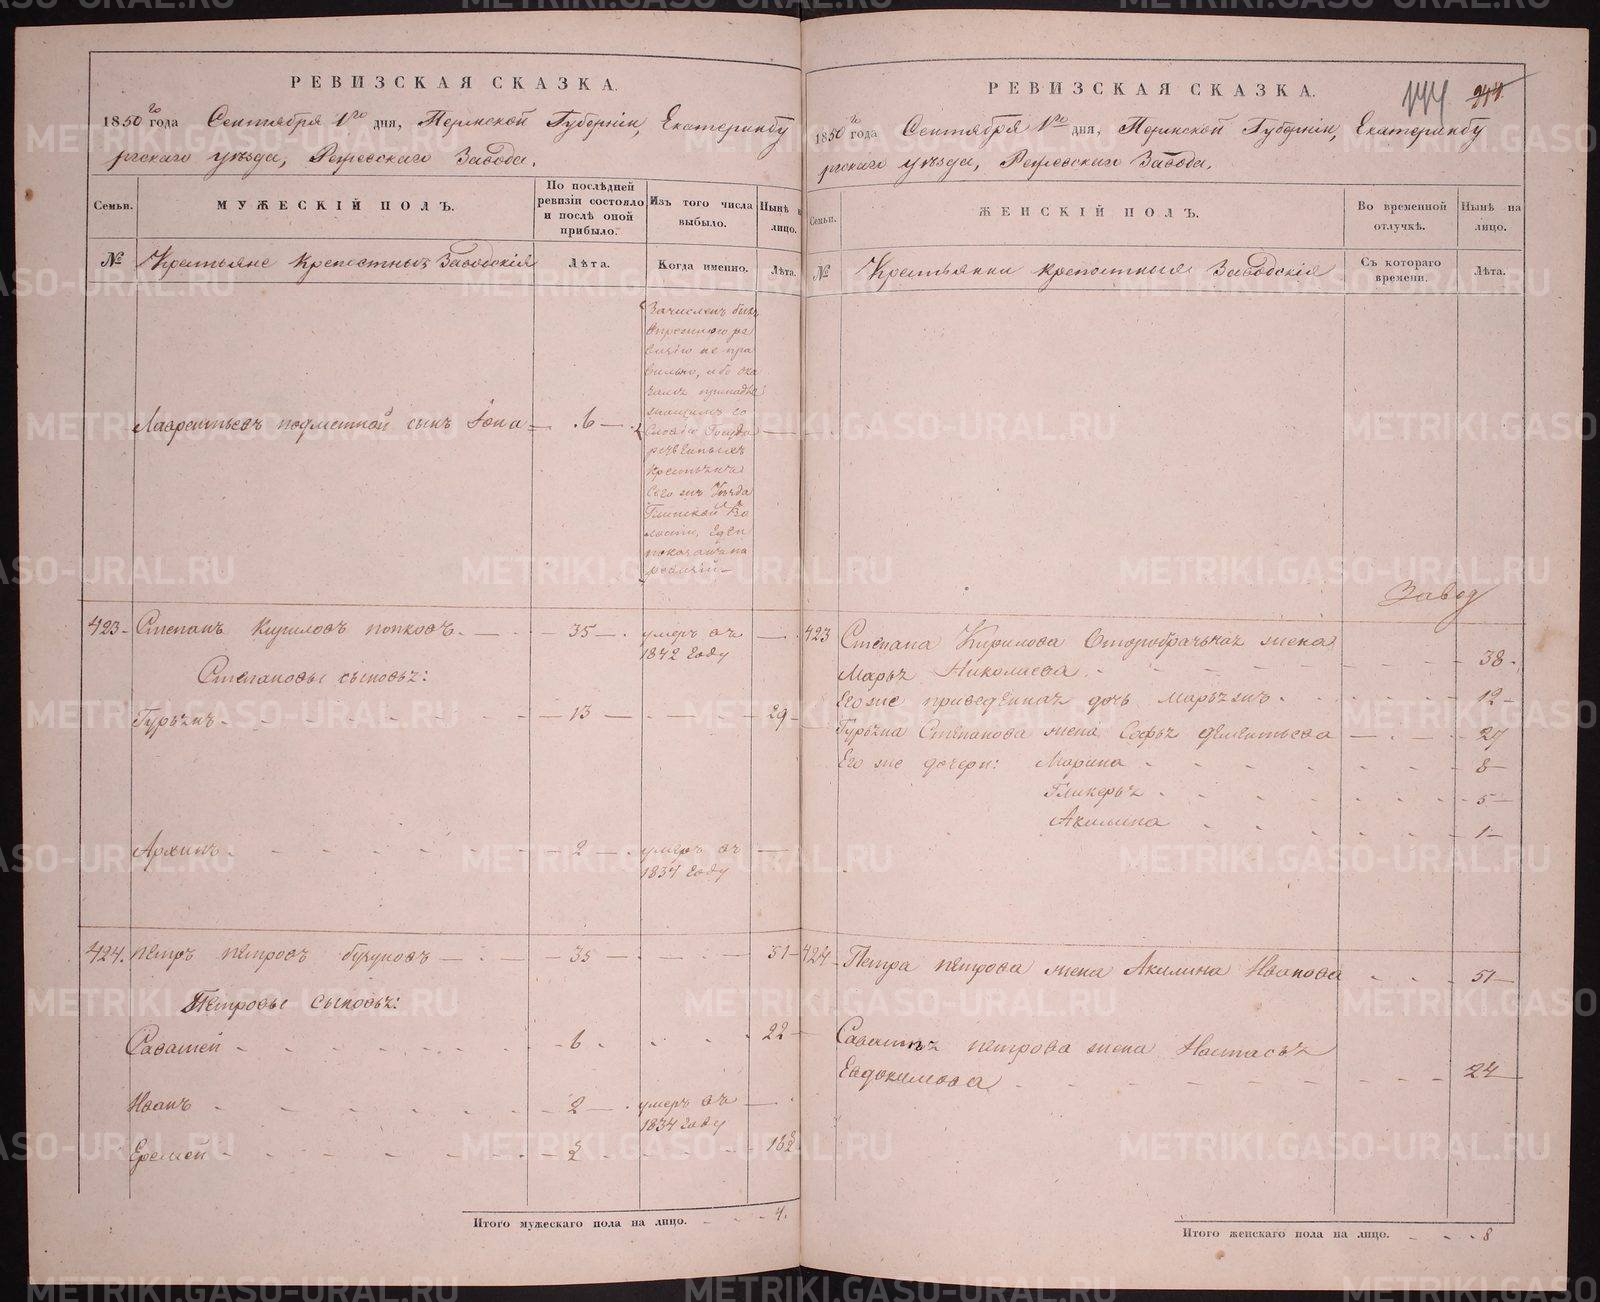 РЕВИЗСКАЯ СКАЗКА.
1850го года Сентября 1го дня, Пермской Губернiи, Екатеринбу
ргскаго уѣзда, Режевскаго Завода.
Семьи.
МУЖЕСКIЙ ПОЛЪ.
По послѣдней ревизiи состояло и послѣ оной прибыло.
Изъ того числа выбыло.
Нынѣ на лицо.
№
Крестьяне крепостныя Заводскiя
Лѣта.
Когда именно.
Лѣта.
Лаврентьевъ подметной сынъ Iона
6
Зачисленъ былъ
ревизiю не пра
вильно, ибо ока
зался принадле
жащимъ со
словiю Госуда
рственныхъ
крестьянъ
сего жъ Уѣзда
Глинской Во
лости,
показанъ по
ревизiи
423 Степанъ Кириловъ попковъ
35
умеръ въ
1842 году
Степановы сыновья:
Гурьянъ
13
29
Архипъ
2
умеръ въ
1837 году
424. петръ петровъ бузуновъ
35
51
Петровы сыновья:
Саватей
6
22
Иванъ
2
умеръ въ
1834 году
Еремей
2
Итого мужескаго пола на лицо.
4.
РЕВИЗСКАЯ СКАЗКА.
144
244
1850го года Сентября 1го дня, Пермской Губернiи, Екатеринбу
ргскаго уѣзда, Режевскаго Завода.
Семьи.
ЖЕНСКIЙ ПОЛЪ.
Во временной отлучкѣ.
Нынѣ на лицо.
№
Крестьянки крепостныя Заводскiя
Съ котораго времени.
Лѣта.
Завод
423 Степана Кирилова второбрачьная жена
Марья Николаева
38
Его же приведенная дочь Марья
12
Гурьяна Степанова жена Софья дементьева
27
Его же дочери: Марина
8
Гликерья
5
Акилина
1
424 Петра петрова жена Акилина Иванова
51
Саватея петрова жена Настасья
Евдокимова
24
Итого женскаго пола на лицо.
8
METRIKI.GASO-URAL.RU